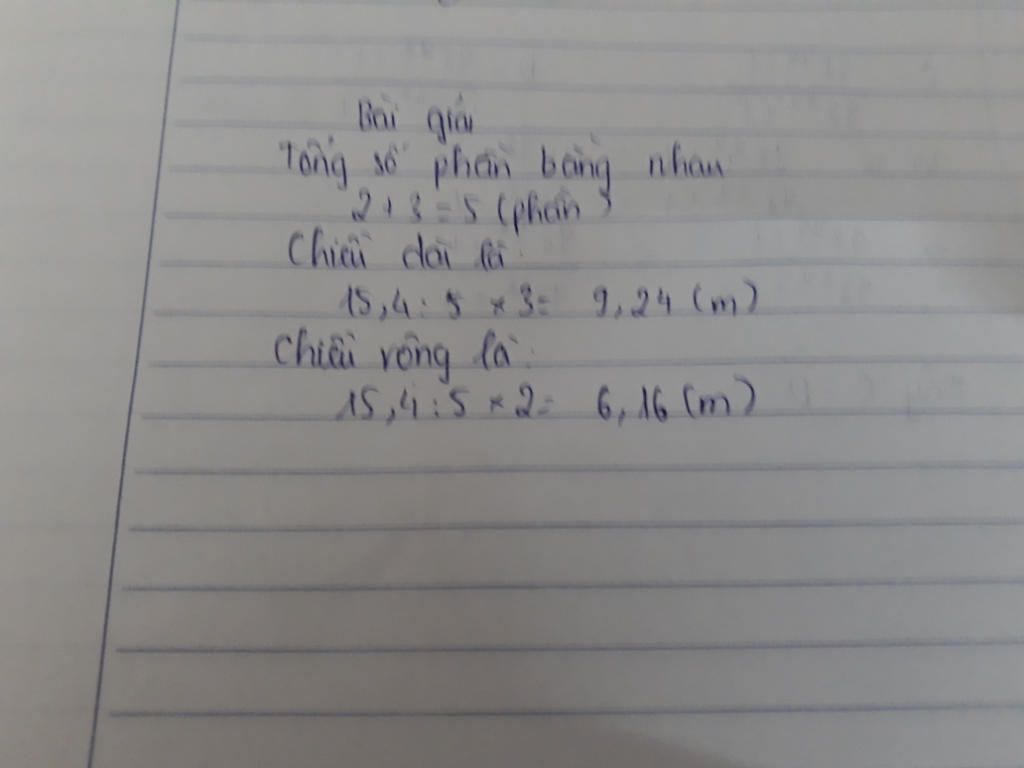 Bài giải
Tổng số phần bằng nhau
2 + 3 = 5 (phần)
Chiều dài là:
15,4 : 5 × 3 = 9,24 (m)
Chiều rộng là:
15,4 : 5 × 2 = 6,16 (m)